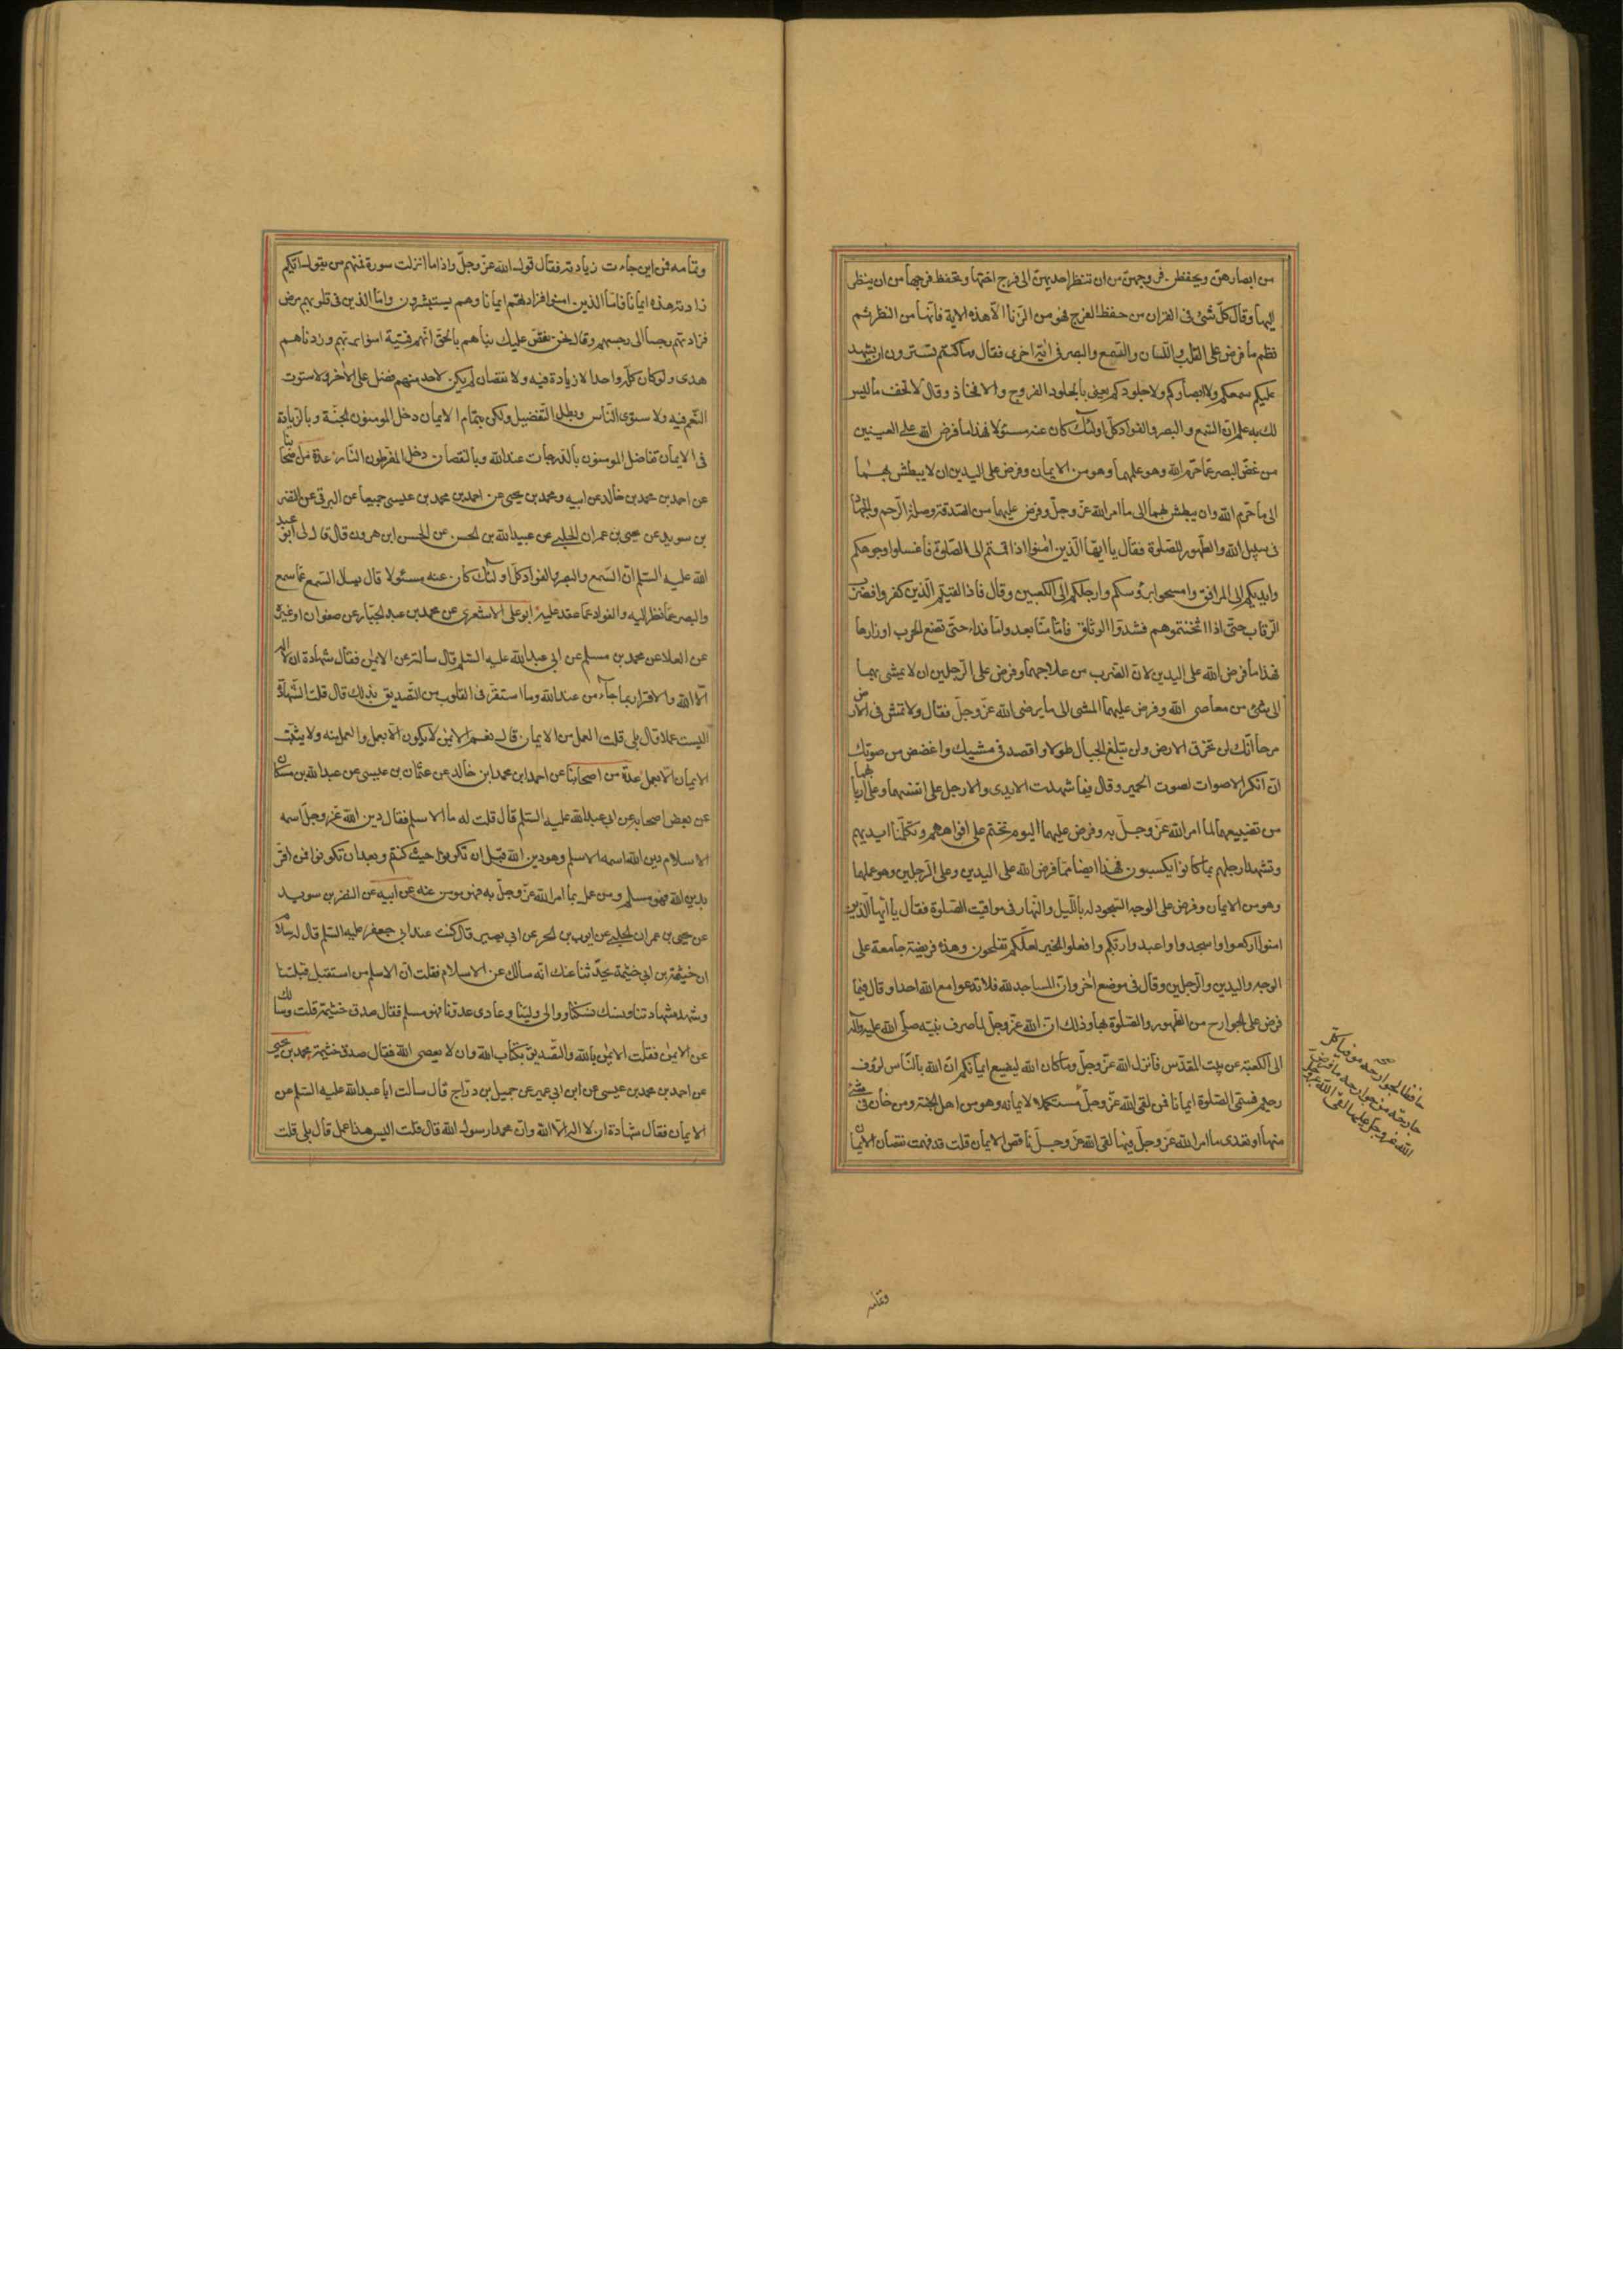 من ابصارهن ويحفظن فروجهن من ان تنظر احديهن الى فرج اختها وتحفظ فرجها من ان ينظر
اليها وقال كل شئ فى القران من حفظ الفرج فهو من الزنا الا هذه الاية فانها من النظر ثم
نظم ما فرض على القلب واللسان والسمع والبصر فى اية اخرى فقال وما كنتم تستترون ان يشهد
عليكم سمعكم ولا ابصاركم ولا جلودكم يعنى بالجلود الفروج والافخاذ وقال لا تقف ما ليس
لك به علم ان السمع والبصر والفواد كل اولئك كان عنه مسئولا فهذا ما فرض الله على العينين
من غض البصر عما حرم الله وهو عملهما وهو من الايمان وفرض على اليدين ان لا يبطش بهما
الى ما حرم الله وان يبطش بهما الى ما امر الله عز وجل وفرض عليهما من الصدقة وصلة الرحم والجهاد
فى سبيل الله والطهور للصلوة فقال يا ايها الذين امنوا اذا قمتم الى الصلوة فاغسلوا وجوهكم
وايديكم الى المرافق وامسحوا برؤسكم وارجلكم الى الكعبين وقال فاذا لقيتم الذين كفروا فضرب
الرقاب حتى اذا اثخنتموهم فشدوا الوثاق فاما منا بعد واما فداء حتى تضع الحرب اوزارها
فهذا ما فرض الله على اليدين لان الضرب من علاجهما وفرض على الرجلين ان لا يمشى بهما
الى شئ من معاصى الله وفرض عليهما المشى الى ما يرضى الله عز وجل فقال ولا تمش فى الارض
مرحا انك لن تخرق الارض ولن تبلغ الجبال طولا واقصد فى مشيك واغضض من صوتك
ان انكر الاصوات لصوت الحمير وقال فيما شهدت الايدى والارجل على انفسهما وعلى اربابهما
من تضييعهما لما امر الله عز وجل به وفرض عليهما اليوم نختم على افواههم وتكلمنا ايديهم
وتشهد ارجلهم بما كانوا يكسبون فهذا ايضا مما فرض الله على اليدين وعلى الرجلين وهو عملهما
وهو من الايمان وفرض على الوجه السجود له بالليل والنهار فى مواقيت الصلوة فقال يا ايها الذين
امنوا اركعوا واسجدوا واعبدوا ربكم وافعلوا الخير لعلكم تفلحون وهذه فريضة جامعة على
الوجه واليدين والرجلين وقال فى موضع اخر وان المساجد لله فلا تدعوا مع الله احدا وقال فيما
فرض على الجوارح من الطهور والصلوة بها وذلك ان الله عز وجل لما صرف نبيه صلى الله عليه وآله
الى الكعبة عن بيت المقدس فانزل الله عز وجل وما كان الله ليضيع ايمانكم ان الله بالناس لرؤف
رحيم فسمى الصلوة ايمانا فمن لقى الله عز وجل مستكملا لايمانه وهو من اهل الجنة ومن خان فى شئ
منها او تعدى ما امر الله عز وجل فيها لقى الله عز وجل ناقص الايمان قلت قد فهمت نقصان الايمان
صح
حافظا لجوارحه موفيا كل
جارحة من جوارحه ما فرض
الله عز وجل عليها لقى الله عز وجل
وتمامه
وتمامه فمن اين جاءت زيادته فقال قول الله عز وجل واذا ما انزلت سورة فمنهم من يقول ايكم
زادته هذه ايمانا فاما الذين امنوا فزادتهم ايمانا وهم يستبشرون واما الذين فى قلوبهم مرض
فزادتهم رجسا الى رجسهم وقال نحن نقص عليك نباهم بالحق انهم فتية امنوا بربهم وزدناهم
هدى ولو كان كله واحدا لا زيادة فيه ولا نقصان لم يكن لاحد منهم فضل على الاخر ولاستوت
النعم فيه ولاستوى الناس وبطل التفضيل ولكن بتمام الايمان دخل المومنون الجنة وبالزيادة
فى الايمان تفاضل المومنون بالدرجات عند الله وبالنقصان دخل المفرطون النار عدة من اصحابنا
عن احمد بن محمد بن خالد عن ابيه ومحمد بن يحيى عن احمد بن محمد بن عيسى جميعا عن البرقى عن النضر
بن سويد عن يحيى بن عمران الحلبى عن عبيد الله بن الحسن عن الحسن ابن هرون قال قال لى ابو عبد
الله عليه السلم ان السمع والبصر والفواد كل اولئك كان عنه مسئولا قال يسال السمع عما سمع
والبصر عما نظر اليه والفواد عما عقد عليه ابو على الاشعرى عن محمد بن عبد الجبار عن صفوان او غيره
عن العلا عن محمد بن مسلم عن ابى عبد الله عليه السلم قال سالته عن الايمن فقال شهادة ان لا اله
الا الله والاقرار بما جاء من عند الله وما استقر فى القلوب من التصديق بذلك قال قلت الشهادة
اليست عملا قال بلى قلت العمل من الايمان قال نعم الايمن لا يكون الا بعمل والعمل منه ولا يثبت
الايمان الا بعمل عدة من اصحابنا عن احمد ابن محمد ابن خالد عن عثمان بن عيسى عن عبد الله بن مسكان
عن بعض اصحابه عن ابى عبد الله عليه السلم قال قلت له ما الاسلم فقال دين الله عز وجل اسمه
الاسلام دين الله اسمه الاسلم وهو دين الله قبل ان تكونوا حيث كنتم وبعد ان تكونوا فمن اقر
بدين الله فهو مسلم ومن عمل بما امر الله عز وجل به فهو مومن عنه عن ابيه عن النضر بن سويد
عن يحيى بن عمران الحلبى عن ايوب بن الحر عن ابى بصير قال كنت عند ابى جعفر عليه السلم قال له سلام
ان خيثمة بن ابى خيثمة يحدثنا عنك انه سالك عن الاسلام فقلت ان الاسلم من استقبل قبلتنا
وشهد شهادتنا ونسك نسكنا ووالى ولينا وعادى عدونا فهو مسلم فقال صدق خيثمة قلت وسالك
عن الايمن فقلت الايمن بالله والتصديق بكتاب الله وان لا يعصى الله فقال صدق خيثمة محمد بن يحيى
عن احمد بن محمد بن عيسى عن ابن ابى عمير عن جميل بن دراج قال سالت ابا عبد الله عليه السلم عن
الايمان فقال شهادة ان لا اله الا الله وان محمدا رسول الله قال قلت اليس هذا عمل قال بلى قلت